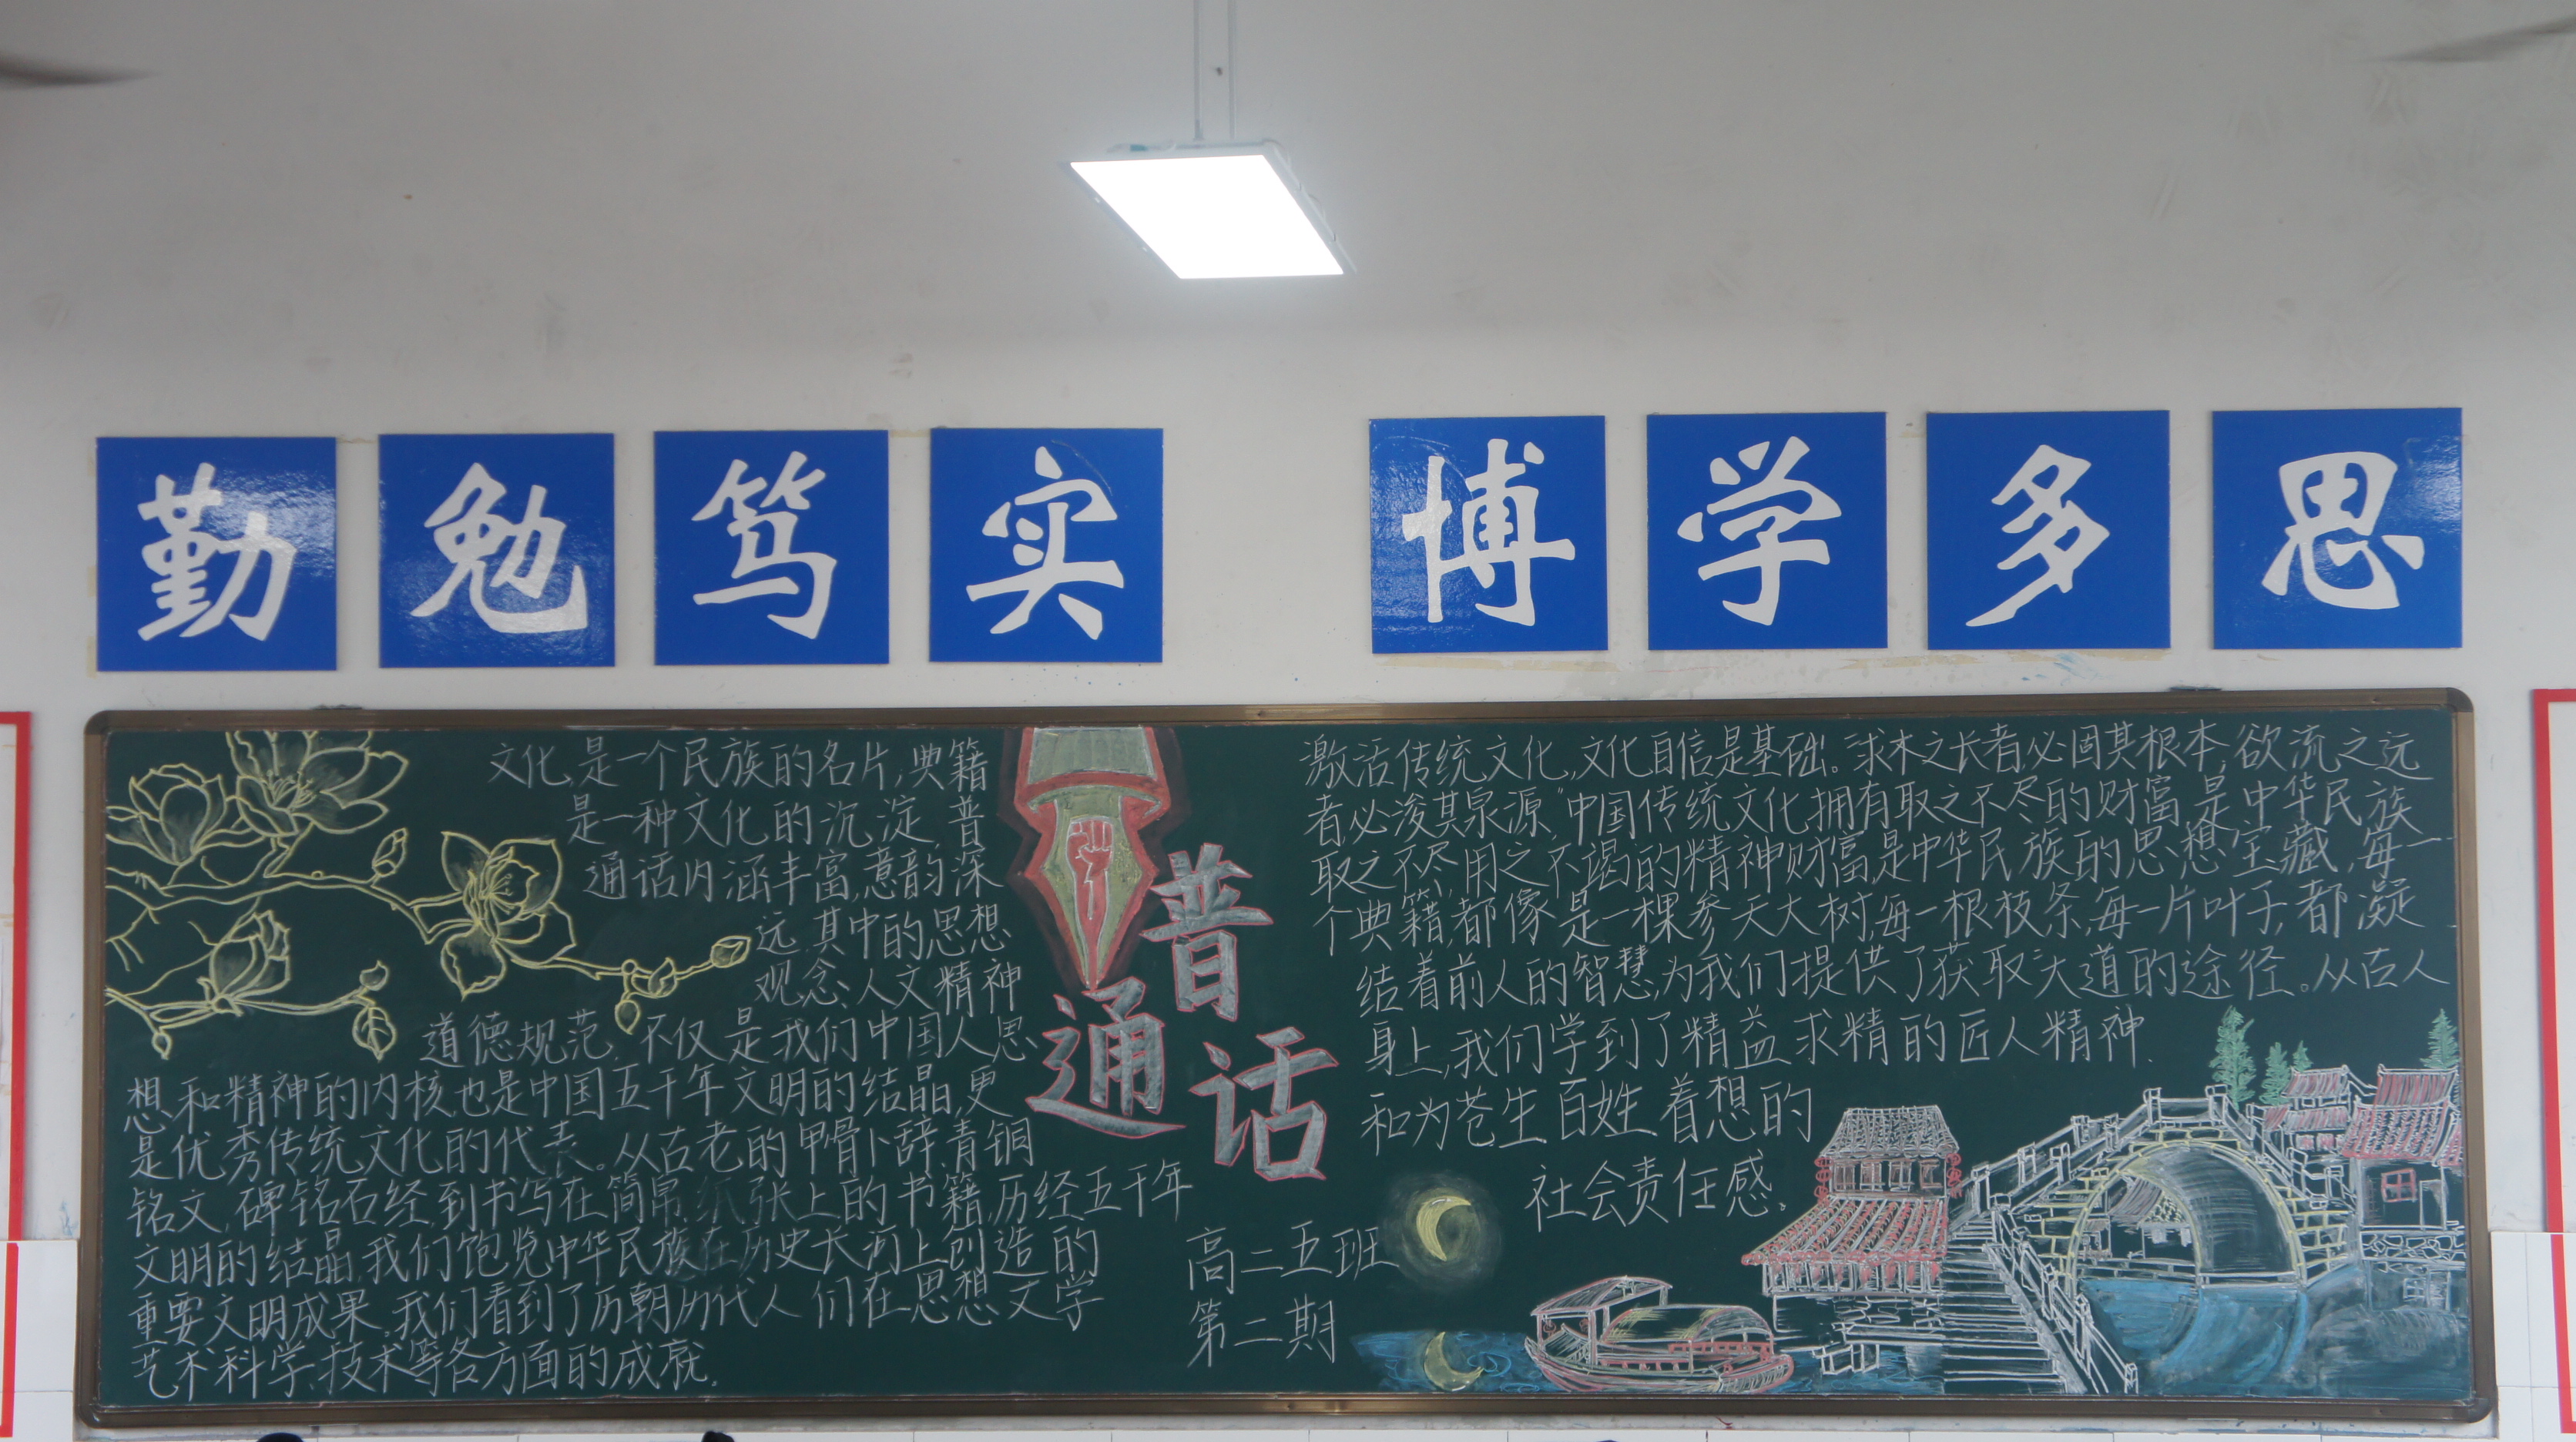 勤勉笃实 博学多思
文化,是一个民族的名片,典籍
是一种文化的沉淀,普
通话内涵丰富,意韵深
远,其中的思想
观念、人文精神
道德规范,不仅是我们中国人思
想和精神的内核,也是中国五千年文明的结晶,更
是优秀传统文化的代表。从古老的甲骨卜辞,青铜
铭文,碑铭石经,到书写在简帛,纸张上的书籍,历经五千年
文明的结晶,我们饱览中华民族在历史长河上创造的
重要文明成果,我们看到了历朝历代人们在思想文学
艺术科学,技术等各方面的成就.
普
通
话
高二五班
第二期
激活传统文化,文化自信是基础。求木之长者,必固其根本,欲流之远
者,必浚其泉源"中国传统文化拥有取之不尽的财富,是中华民族
取之不尽,用之不竭的精神财富,是中华民族的思想宝藏,每一
个典籍,都像是一棵参天大树,每一根枝条,每一片叶子,都凝
结着前人的智慧,为我们提供了获取大道的途径。从古人
身上,我们学到了精益求精的匠人精神.
和为苍生百姓着想的
社会责任感。